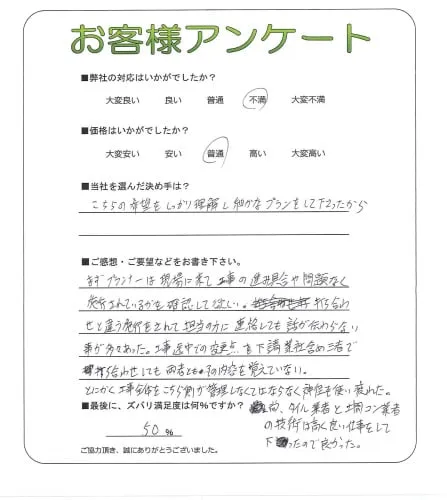 お客様アンケート
■弊社の対応はいかがでしたか?
大変良い 良い 普通 不満 大変不満
■価格はいかがでしたか?
大変安い 安い 普通 高い 大変高い
■当社を選んだ決め手は?
こちらの希望をしっかり理解し細かなプランをして下さったから
■ご感想・ご要望などをお書き下さい。
まずプランナーは現場に来て工事の進み具合や問題なく
施行されているかを確認して欲しい。打ち合わ
せと違う施行をされて担当の方に連絡しても話が伝わらない
事が多々あった。工事途中での変更点を下請業社含め三者で
打ち合わせしても両者ともその内容を覚えていない。
とにかく工事全体をこちら側が管理しなくてはならなく神経を使い疲れた。
■最後に、ズバリ満足度は何%ですか?
50 %
ご協力頂き、誠にありがとうございました。
尚、タイル業者と土間コン業者
の技術は高く良い仕事をして
下さったので良かった。